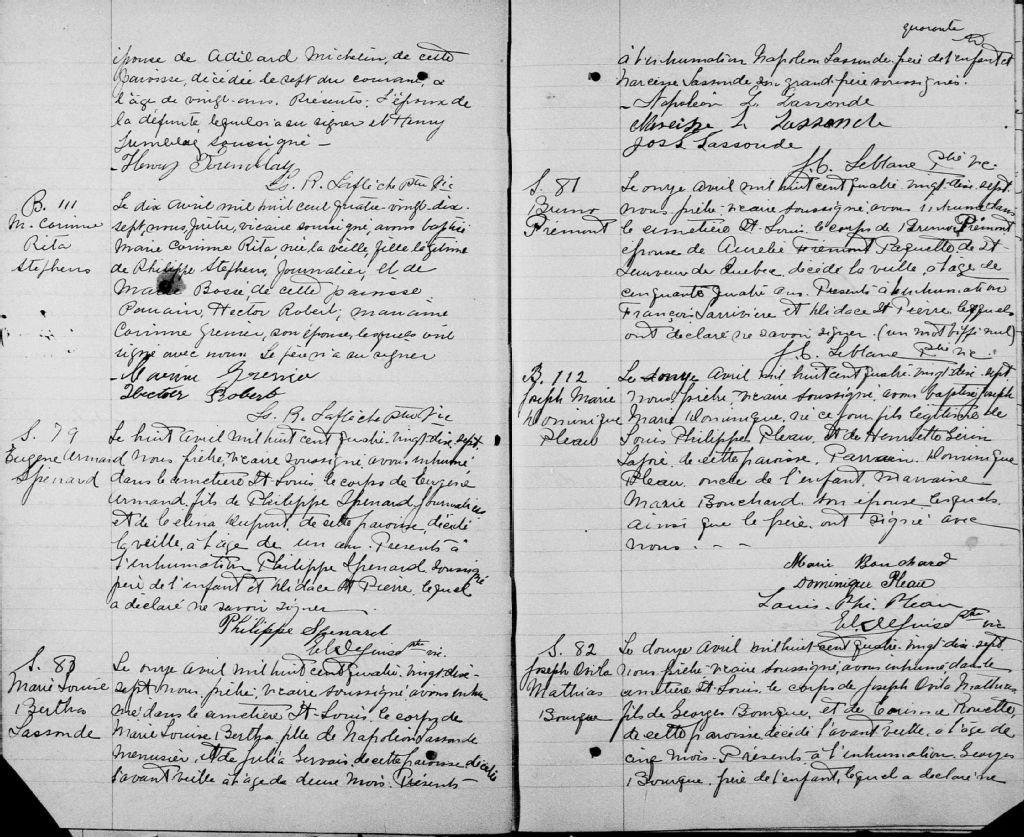 épouse de Adélard Michelin, de cette
paroisse, décédée le sept du courant, à
l'âge de vingt-ans. Présents: L'époux de
la défunte, lequel n'a su signer et Henry
Tremblay soussigné —
— Henry Tremblay
Ls. R. Laflèche ptre vic
B. 111
M. Corinne
Rita
Stephens
Le dix avril mil huit cent quatre-vingt-dix-
sept, nous, prêtre, vicaire soussigné, avons baptisé
Marie Corinne Rita, née la veille, fille légitime
de Philippe Stephens, Journalier, et de
Marie Bossé, de cette paroisse
Parrain, Hector Robert, marraine
Corinne Grenier, son épouse, lesquels ont
signé avec nous. Le père n'a su signer
— Corinne Grenier
Hector Robert
Ls. R. Laflèche ptre Vic
S. 79
Eugène Armand
Spenard
Le huit avril mil huit cent quatre-vingt-dix-sept
Nous prêtre, vicaire soussigné, avons inhumé
dans le cimetière St Louis, le corps de Eugène
Armand, fils de Philippe Spenard, Journalier
et de Celina Dupont, de cette paroisse, décédé
la veille, à l'âge de un an. Présents à
l'inhumation Philippe Spenard, soussigné
père de l'enfant et Elidace St Pierre, lequel
a déclaré ne savoir signer
Philippe Spenard
ptre vic.
S. 80
Marie Louise
Bertha
Lassonde
Le onze Avril mil huit cent quatre-vingt-dix-
sept Nous, prêtre, vicaire soussigné avons inhu
mé dans le cimetière St-Louis, le corps de
Marie Louise Bertha, fille de Napoléon Lassonde
menuisier, et de Julia Gervais, de cette paroisse, décédée
l'avant veille à l'âge de deux mois. Présents
quarante
à l'inhumation Napoléon Lassonde, père de l'enfant et
Narcisse Lassonde, son grand-père soussignés.
— Napoléon L. Lassonde
Narcisse L Lassonde
Jos L Lassonde
J. E. Leblanc Ptre vic.
S. 81
Bruno
Frémont
Le onze Avril mil huit cent quatre-vingt-dix-sept
nous prêtre-vicaire soussigné, avons inhumé dans
le cimetière St Louis, le corps de Bruno Frémont
épouse de Aurelie Frémont Paquette, de St
Sauveur de Quebec, décédé la veille, à l'âge de
cinquante quatre ans. Présents à l'inhumation
François Larrivière et Elidace St Pierre, lesquels
ont déclaré ne savoir signer (un mot biffé nul)
J. E. Leblanc Ptre vic.
B. 112
Joseph Marie
Dominique
Pleau
Le douze Avril mil huit cent quatre-vingt-dix-sept
Nous prêtre vicaire soussigné, avons baptisé Joseph
Marie Dominique, né ce jour fils légitime de
Louis Philippe Pleau, et de Henriette Gérin
Lajoie, de cette paroisse, Parrain, Dominique
Pleau, oncle de l'enfant, Marraine
Marie Bouchard, son épouse lesquels
ainsi que le père, ont signé avec
nous. - -
Marie Bouchard
Dominique Pleau
Louis. Phi. Pleau
ptre vic.
S. 82
Joseph Ovila
Mathias
Bourque
Le douze Avril mil huit cent quatre-vingt-dix-sept
Nous prêtre-vicaire soussigné, avons inhumé dans le
cimetière St Louis, le corps de Joseph Ovila Mathias,
fils de Georges Bourque, et de Corinne Rouette,
de cette paroisse décédé l'avant veille, à l'âge de
cinq mois. Présents, à l'inhumation, Georges
Bourque, père de l'enfant, lequel a déclaré ne